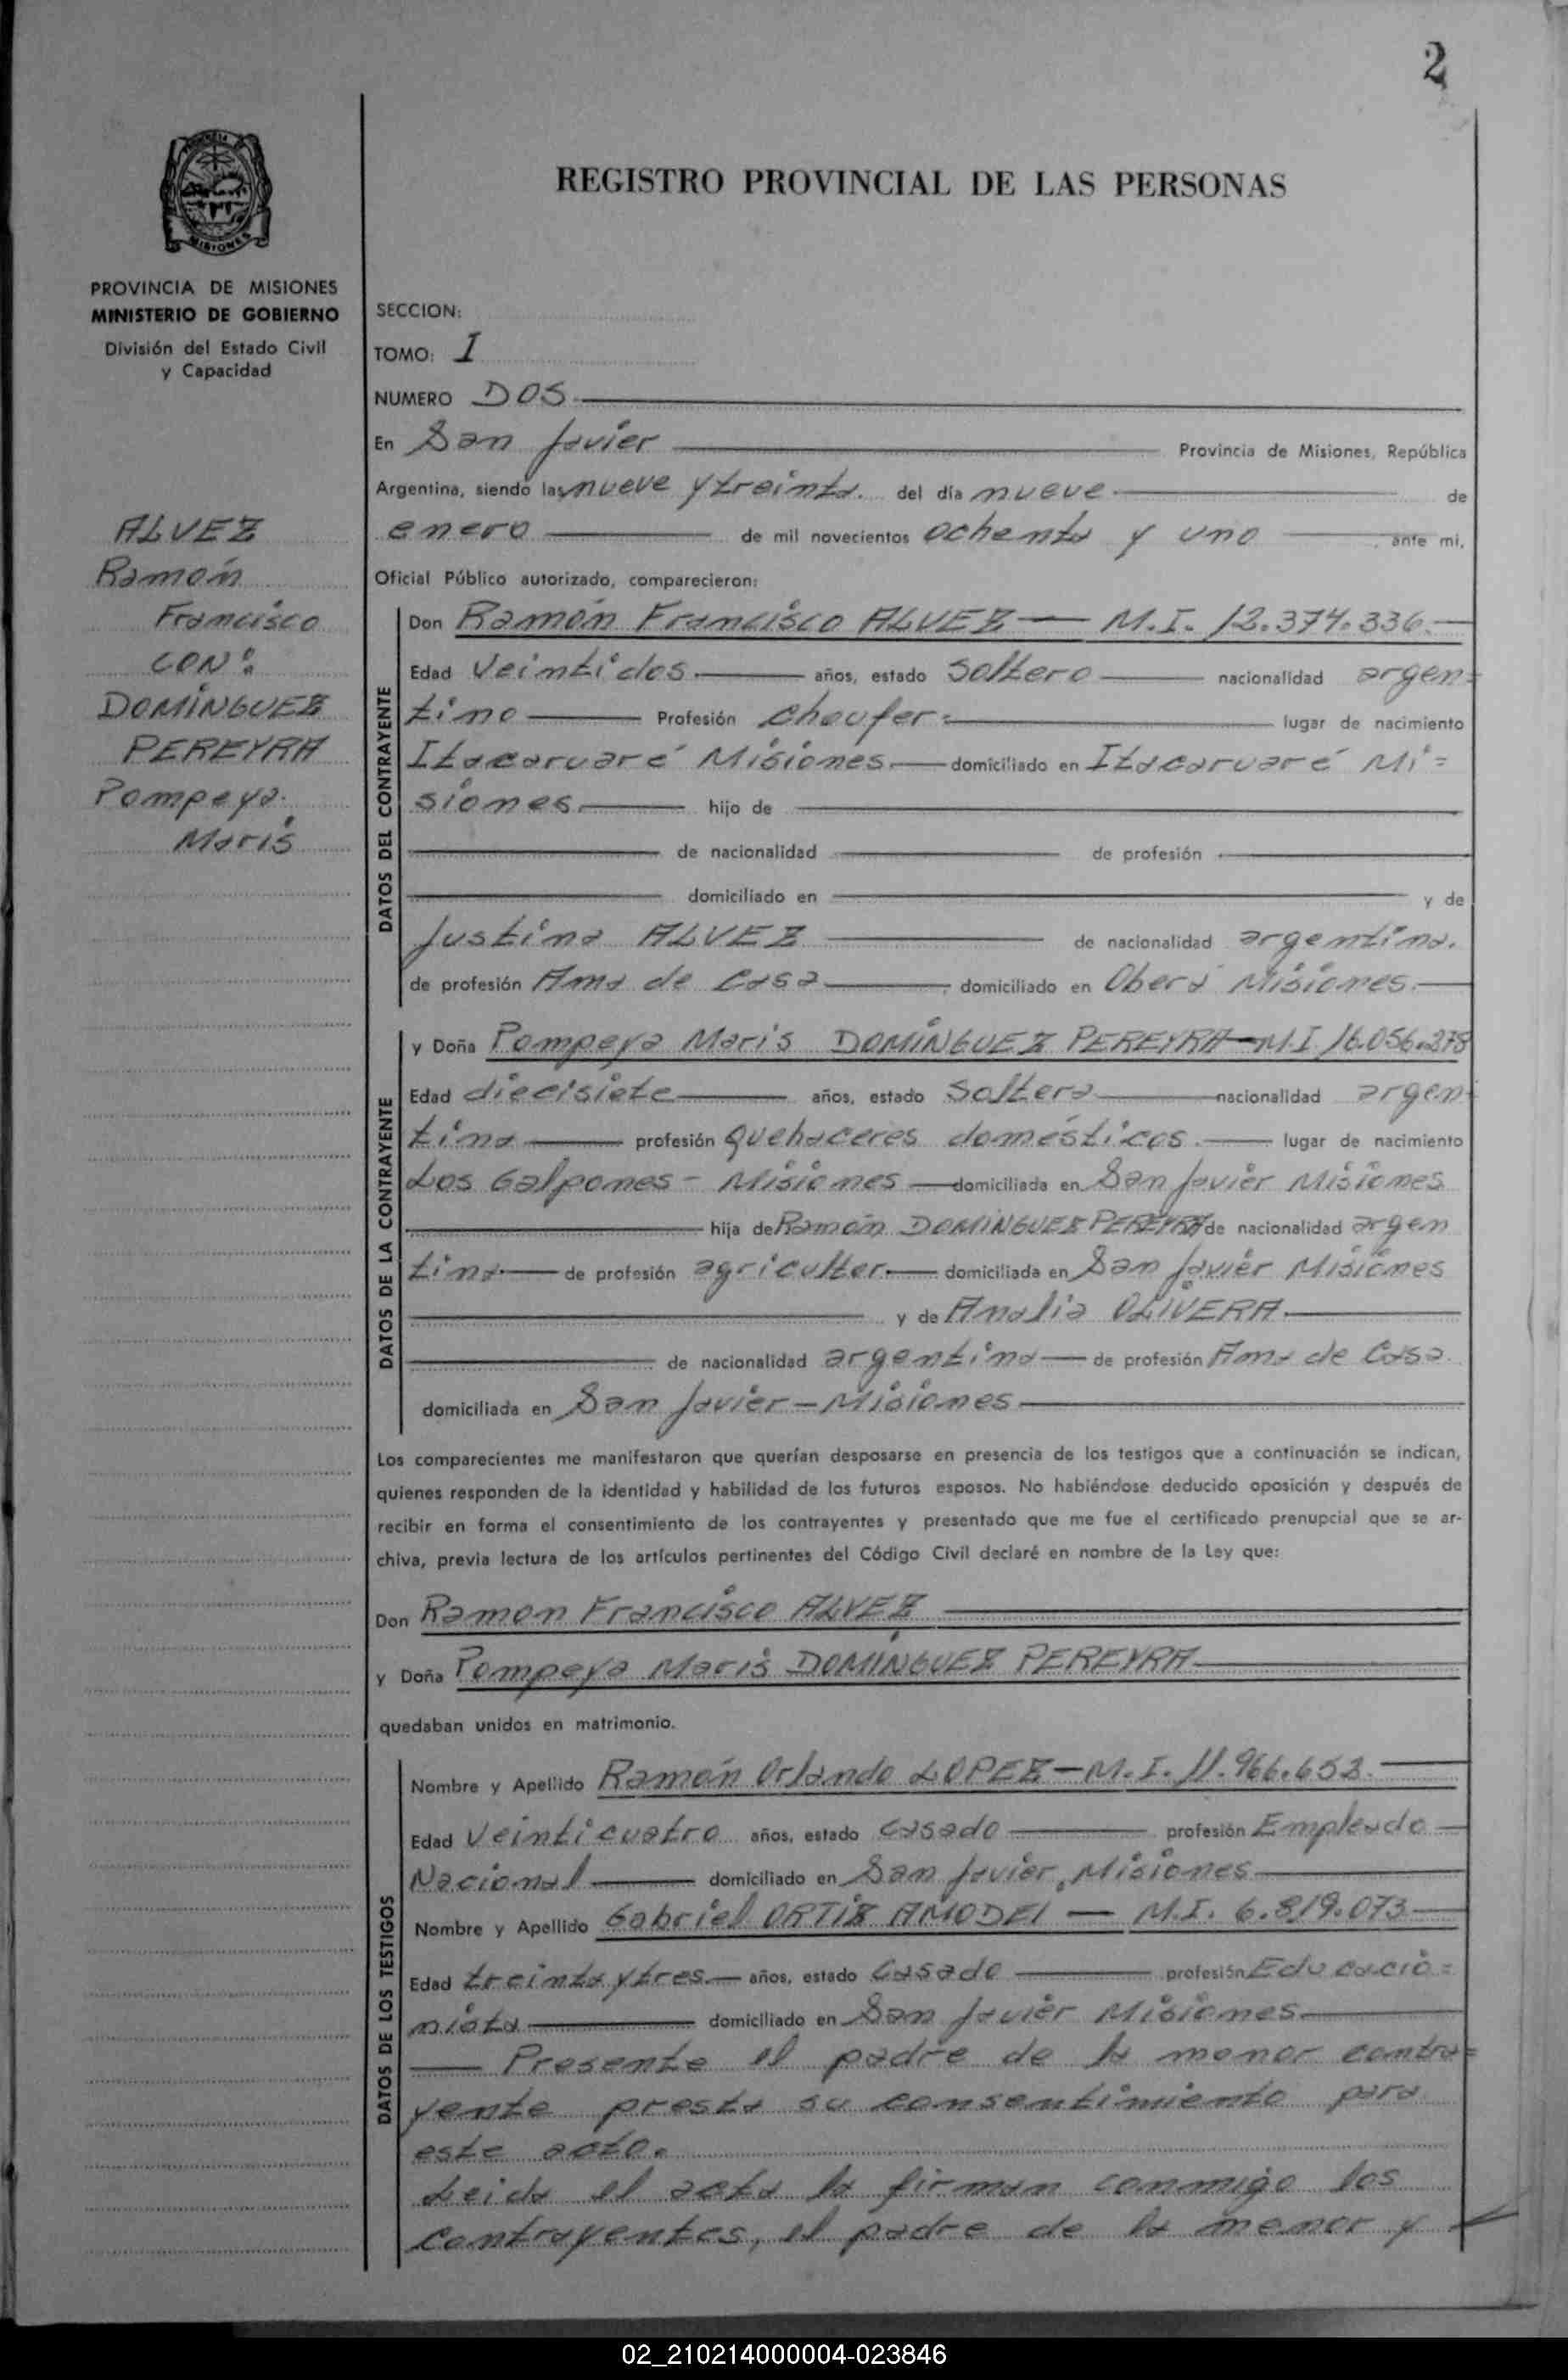 2
PROVINCIA DE MISIONES
MINISTERIO DE GOBIERNO
División del Estado Civil
y Capacidad
ALVEZ
Ramón
Francisco
CON:
DOMÍNGUEZ
PEREYRA
Pompeya
Maris
REGISTRO PROVINCIAL DE LAS PERSONAS
SECCION:
TOMO: I
NUMERO DOS
En San Javier Provincia de Misiones, República
Argentina, siendo las nueve y treinta. del día nueve de
enero de mil novecientos ochenta y uno, ante mi,
Oficial Público autorizado, comparecieron:
DATOS DEL CONTRAYENTE
Don Ramón Francisco ALVEZ — M.I. 12.374.336.—
Edad Veintidos años, estado Soltero nacionalidad argen=
tino Profesión Choufer lugar de nacimiento
Itacaruaré Misiones domiciliado en Itacaruaré Mi=
siones hijo de
de nacionalidad de profesión
domiciliado en y de
Justina ALVEZ de nacionalidad argentina.
de profesión Ama de Casa, domiciliado en Oberá Misiones.
DATOS DE LA CONTRAYENTE
y Doña Pompeya Maris DOMÍNGUEZ PEREYRA — M.I 16.056.278
Edad diecisiete años, estado Soltera nacionalidad argen
tina profesión quehaceres domésticos. lugar de nacimiento
Los Galpones - Misiones domiciliada en San Javier Misiones
hija de Ramón DOMÍNGUEZ PEREYRA de nacionalidad argen
tina de profesión agricultor domiciliada en San Javier Misiones
y de Analia OLIVERA
de nacionalidad argentina de profesión Ama de Casa.
domiciliada en San Javier — Misiones
Los comparecientes me manifestaron que querían desposarse en presencia de los testigos que a continuación se indican,
quienes responden de la identidad y habilidad de los futuros esposos. No habiéndose deducido oposición y después de
recibir en forma el consentimiento de los contrayentes y presentado que me fue el certificado prenupcial que se ar-
chiva, previa lectura de los artículos pertinentes del Código Civil declaré en nombre de la Ley que:
Don Ramon Francisco ALVEZ
y Doña Pompeya Maris DOMÍNGUEZ PEREYRA
quedaban unidos en matrimonio.
DATOS DE LOS TESTIGOS
Nombre y Apellido Ramón Orlando LOPEZ — M.I. 11.966.652.
Edad Veinticuatro años, estado Casado profesión Empleado
Nacional domiciliado en San Javier, Misiones
Nombre y Apellido Gabriel ORTIZ AMODEI — M.I. 6.819.073
Edad treinta y tres años, estado Casado profesión Educacio=
nista domiciliado en San Javier Misiones
— Presente el padre de la menor contra=
yente presta su consentimiento para
este acto.
Leida el acta la firman conmigo los
contrayentes, el padre de la menor y
02_210214000004-023846